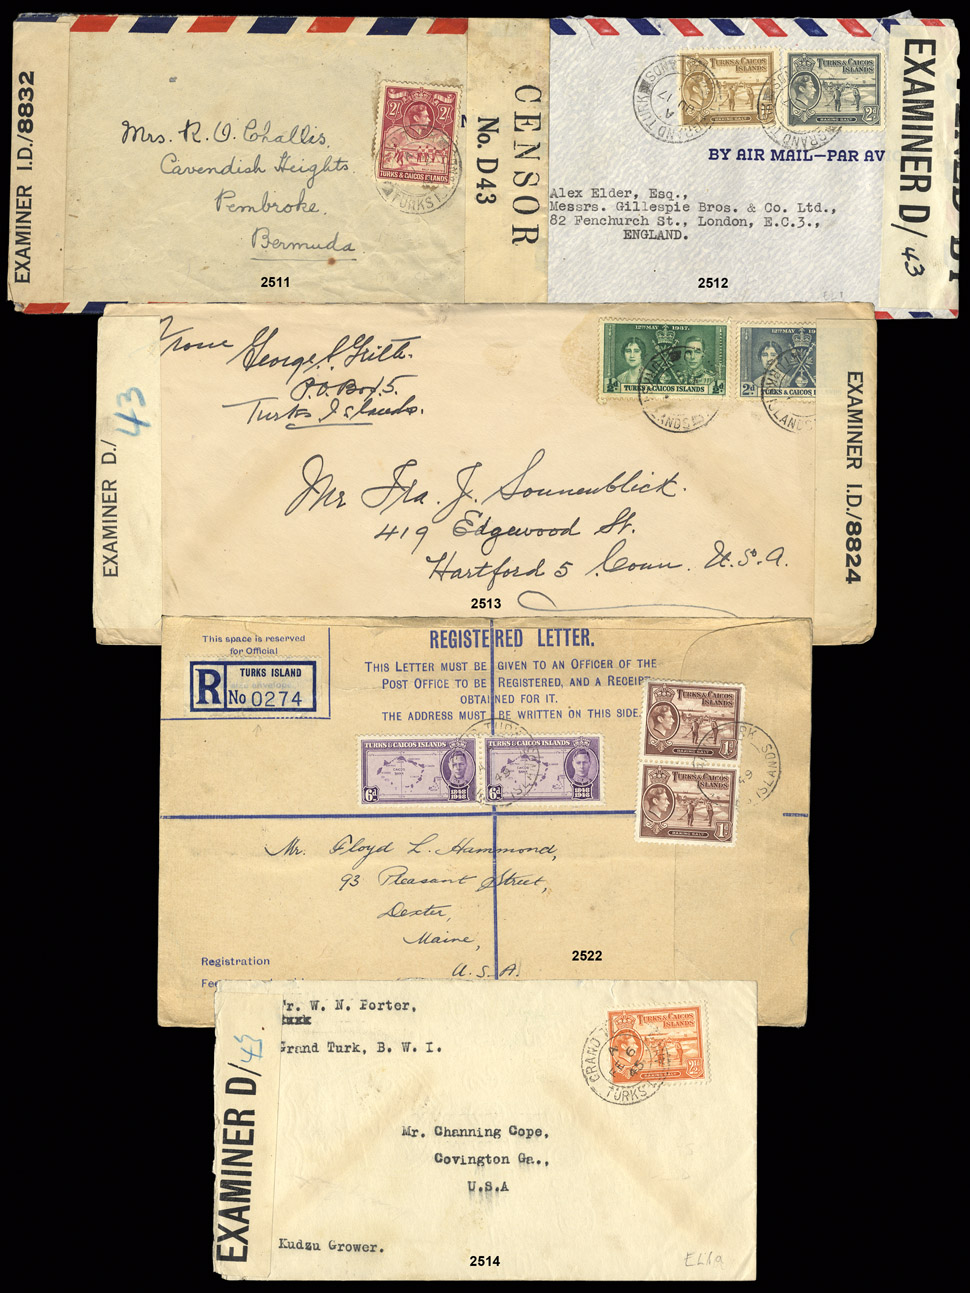 EXAMINER I.D./8832
Mrs. R. O. Challis,
Cavendish Heights.
Pembroke.
Bermuda
2/-
2/-
TURKS & CAICOS ISLANDS
TURKS I
2511
CENSOR
No. D43
TURKS & CAICOS
ISLANDS
MAKING SALT
TURKS & CAICOS
ISLANDS
2d
MAKING SALT
GRAND TURK
17
GRAND TURK
BY AIR MAIL—PAR AV
Alex Elder, Esq.,
Messrs. Gillespie Bros. & Co. Ltd.,
82 Fenchurch St., London, E.C.3.,
ENGLAND.
2512
EXAMINER D/
43
From George S. Frith.
P.O. Box 5.
Turks Islands.
12TH MAY 1937.
½d ½d
TURKS & CAICOS ISLANDS
12TH MAY 19
2d
TURKS & CAICOS I
LANDS
ISLANDS
EXAMINER D./
43
EXAMINER I.D./8824
Mr Ira J. Sonnenblick.
419 Edgewood St.
Hartford 5 Conn. U.S.A.
2513
This space is reserved
for Official
R
TURKS ISLAND
No 0274
REGISTERED LETTER.
THIS LETTER MUST BE GIVEN TO AN OFFICER OF THE
POST OFFICE TO BE REGISTERED, AND A RECEIPT
OBTAINED FOR IT.
THE ADDRESS MUST BE WRITTEN ON THIS SIDE.
TURKS & CAICOS ISLANDS
6d
1848
1948
TURKS & CAICOS ISLANDS
6d
1848
1948
TURKS & CAICOS
ISLANDS
1d
MAKING SALT
TURKS & CAICOS
ISLANDS
1d
MAKING SALT
49
Mr. Floyd L. Hammond,
93 Pleasant Street,
Dexter,
Maine,
U.S.A.
2522
Registration
Fee
r. W. N. Porter,
Grand Turk, B. W. I.
TURKS & CAICOS
ISLANDS
2½d
GRAND
A
FE 6
45
TURKS
EXAMINER D/
43
Mr. Channing Cope,
Covington Ga.,
U.S.A
Kudzu Grower.
2514